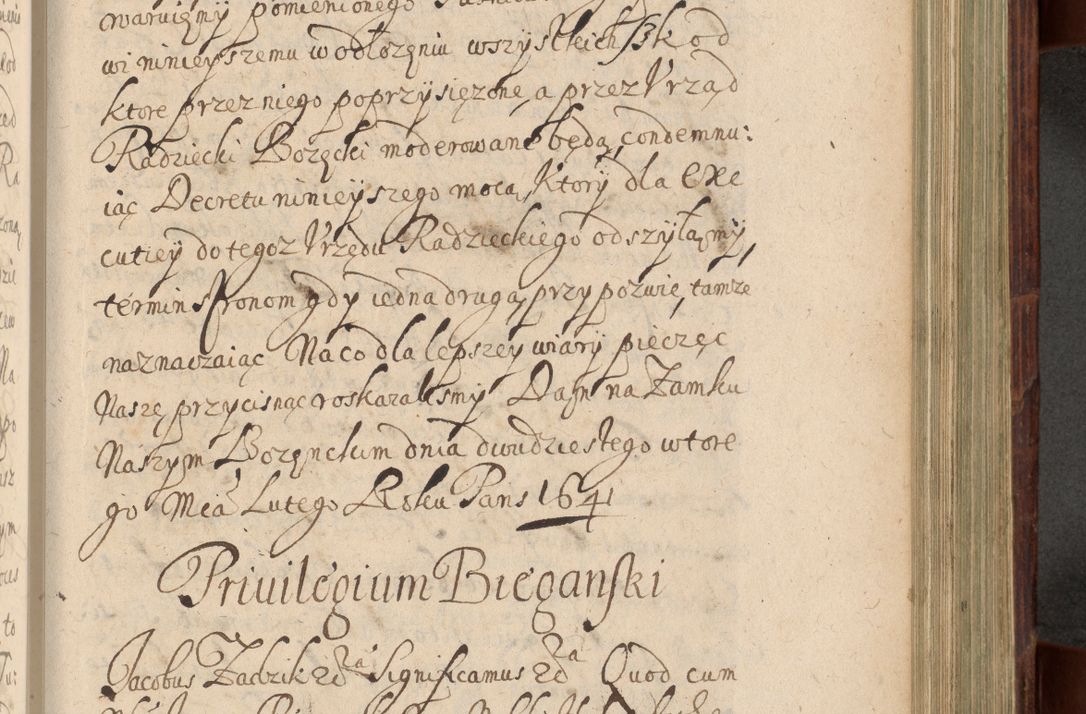 warvięmy pomienionego
wi ninieyszemu w odłozęniu wszystkich szkod
ktore przez niego poprzysięzone, a przez Vrząd
Radziecki Borzęcki moderowane będą, condemnu:
iąc Decretu ninieyszego mocą, Ktory dla exe
cutiey do tegoz Vrzędu Radzieckiego odszyłamy,
termin stronom gdy iedna drugą, przypozwie, tamze
naznaczaiąc Na co dla lepszey wiary pieczęc
Naszę przycisnąc roskazalismy Dan na Zamku
Naszym Borzęnckim dnia dwudziestego wtore
go Mca Lutego Roku Pans 1641
Priuilegium Biegański
Jacobus Zadzik &c Significamus &c Quod cum